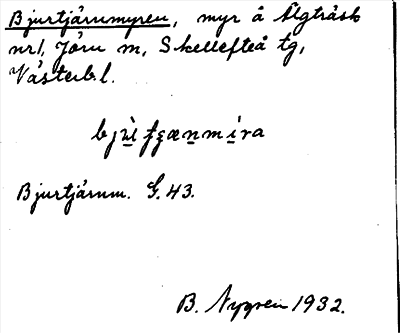 Bjurtjärnmyren, myr å Älgträsk
nr1, Jörn sn, Skellefteå tg,
Västerb.l.
bjʉ̀ṭ fʂænmíra
Bjurtjärnm. G.43.
B. Nygren 1932.